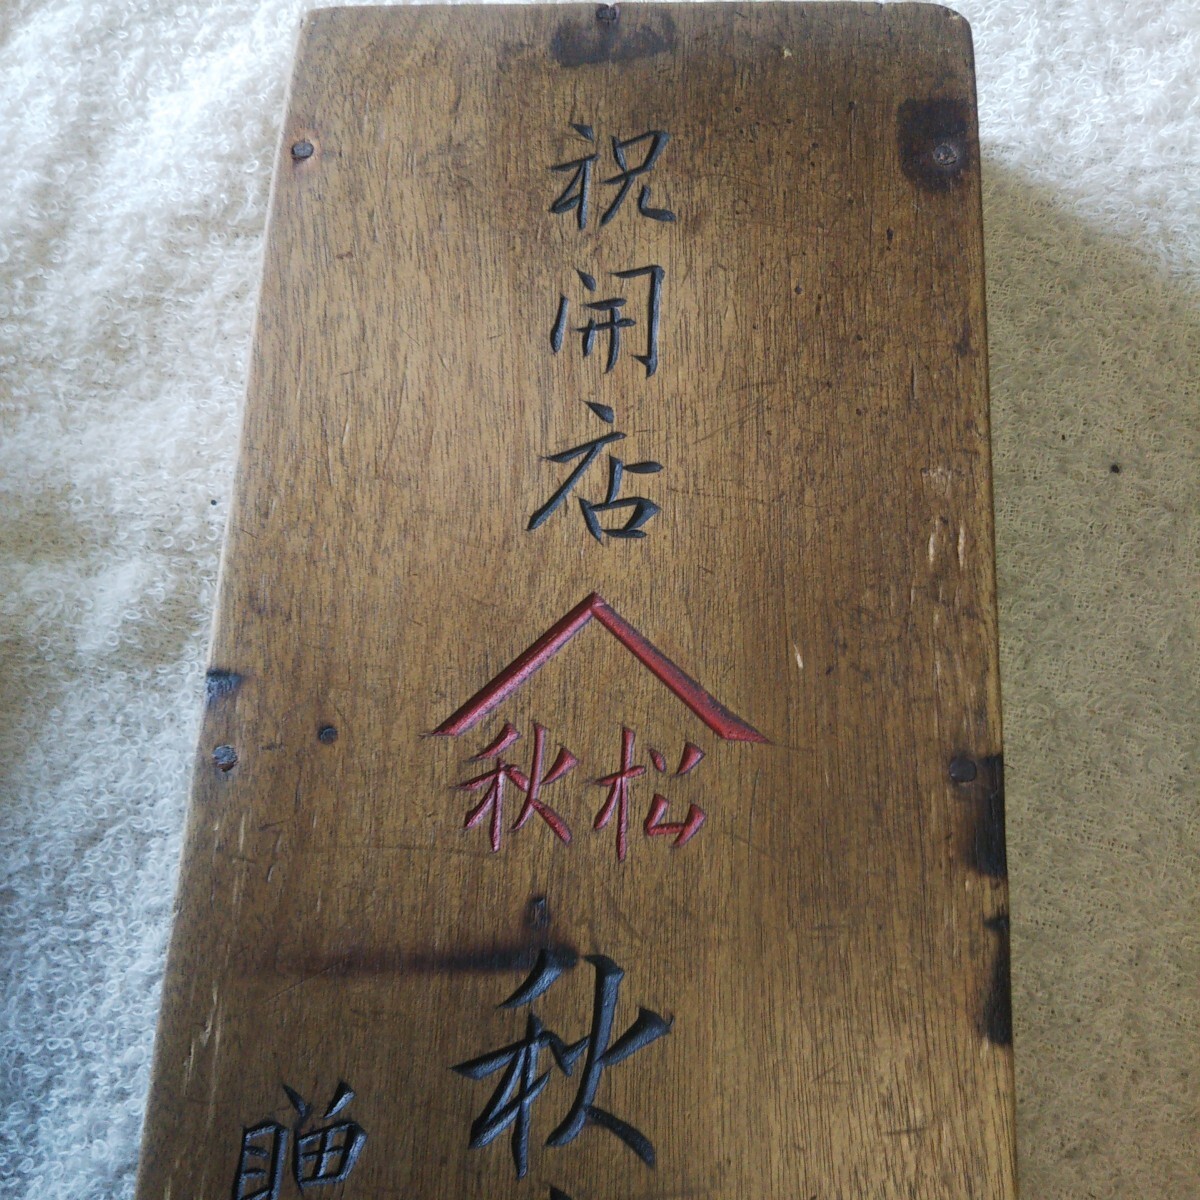 祝開店
秋松
秋
贈